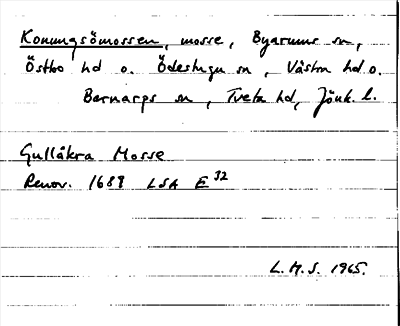 Konungsömossen, mosse, Byarums sn,
Östbo hd o. Ödestugu sn, Västra hd o.
Barnarps sn, Tveta hd, Jönk. l.
Gullåkra Mosse
Renov. 1688 LSA E 32
L.H.S. 1965.